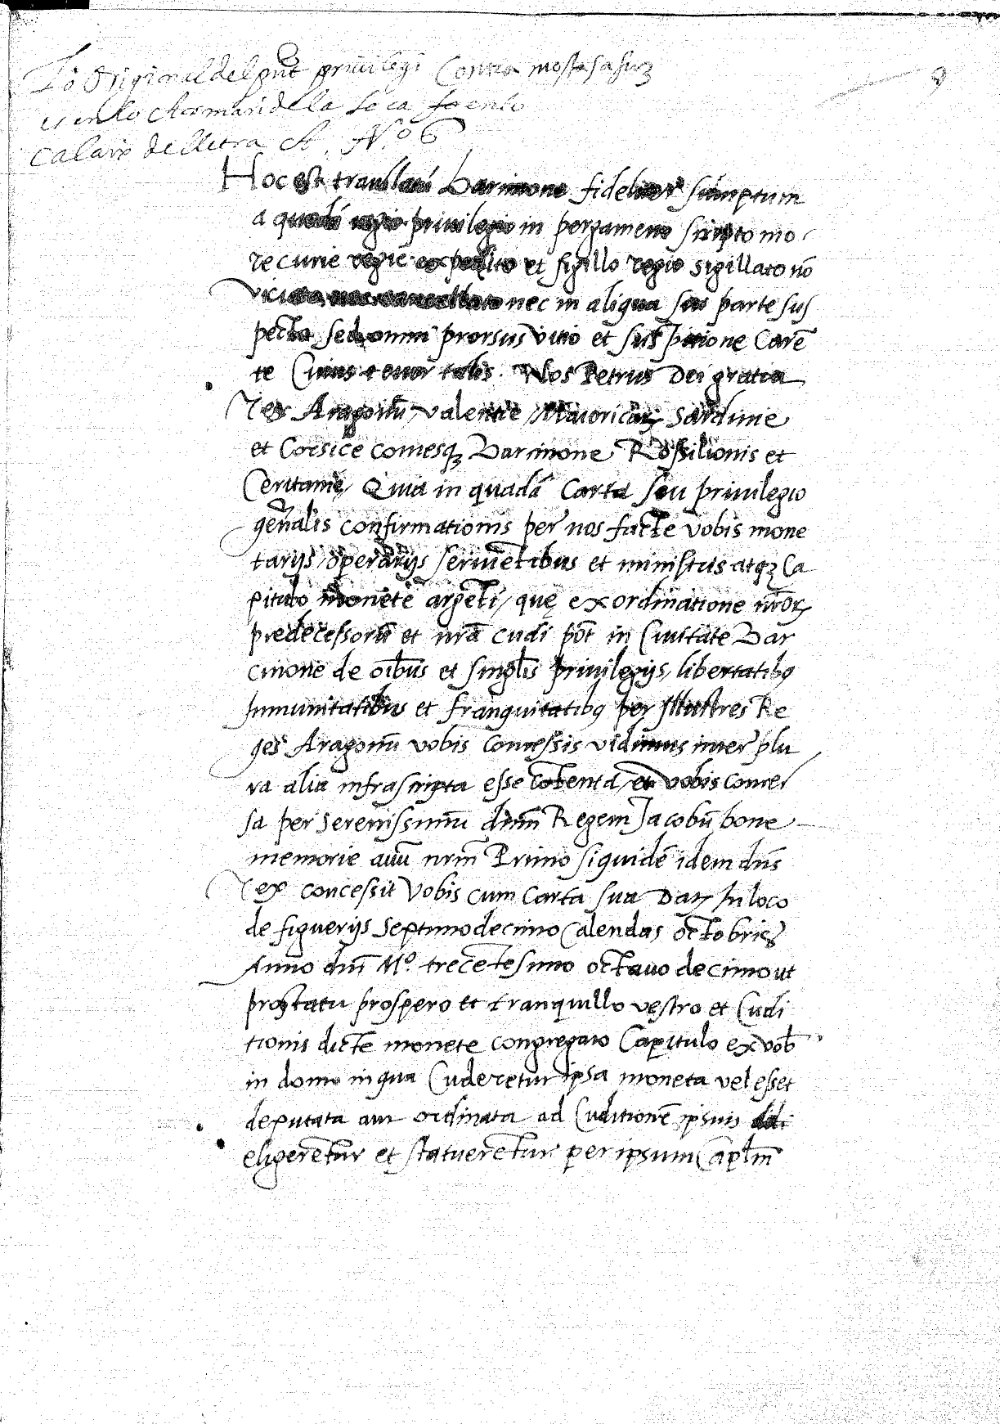 Lo Original del pnt privilegi Contra mostasafurs
es en lo Armari de la Seca so en lo
Calaix de lletra A. N.º 6
Hoc est translatū Barcinone fideliter sumptum
a quodā regio privilegio in pergameno scripto mo
re curie regie expedito et sigillo regio sigillato nō
viciato nec cancellato nec in aliqua sui parte sus
pecto sed omni prorsus vitio et suspitione Carē
te Cuius tenor talis. Nos Petrus Dei gratia
Rex Aragonū Valentie Maioricarȝ Sardinie
et Corsice comesqȝ Barcinone Rossilionis et
Ceritanie, Quia in quadā Carta seu privilegio
gēnalis confirmationis per nos facte vobis mone
tarijs, operarijs servietibus et ministris atqȝ Ca
pitulo monete argēti, que ex ordinatione nrōrȝ
predecessorū et nrā cudi pōt in Civitate Bar
cinone de oībus et singlis privilegijs, libertatibȝ
Inmunitatibus et franquitatibȝ per Illustres Re
ges Aragonū vobis concessis vidimus inter plu
ra alia infrascripta esse cōtenta, et vobis conces
sa per serenissimū dnm Regem Jacobū bone
memorie avū nrm Primo siquidē idem dns
Rex concessit vobis cum Carta sua Datȝ In loco
de figuerijs septimo decimo Calendas octobris
Anno dni Mº. trecētesimo octavo decimo ut
pro statu prospero et tranquillo vestro et Cudi
tionis dicte monete congregato Capitulo ex vob
in domo in qua Cuderetur ipsa moneta vel esset
deputata aut ordinata ad Cuditionē ipsius
eligerētur et statuerētur per ipsum Caplm